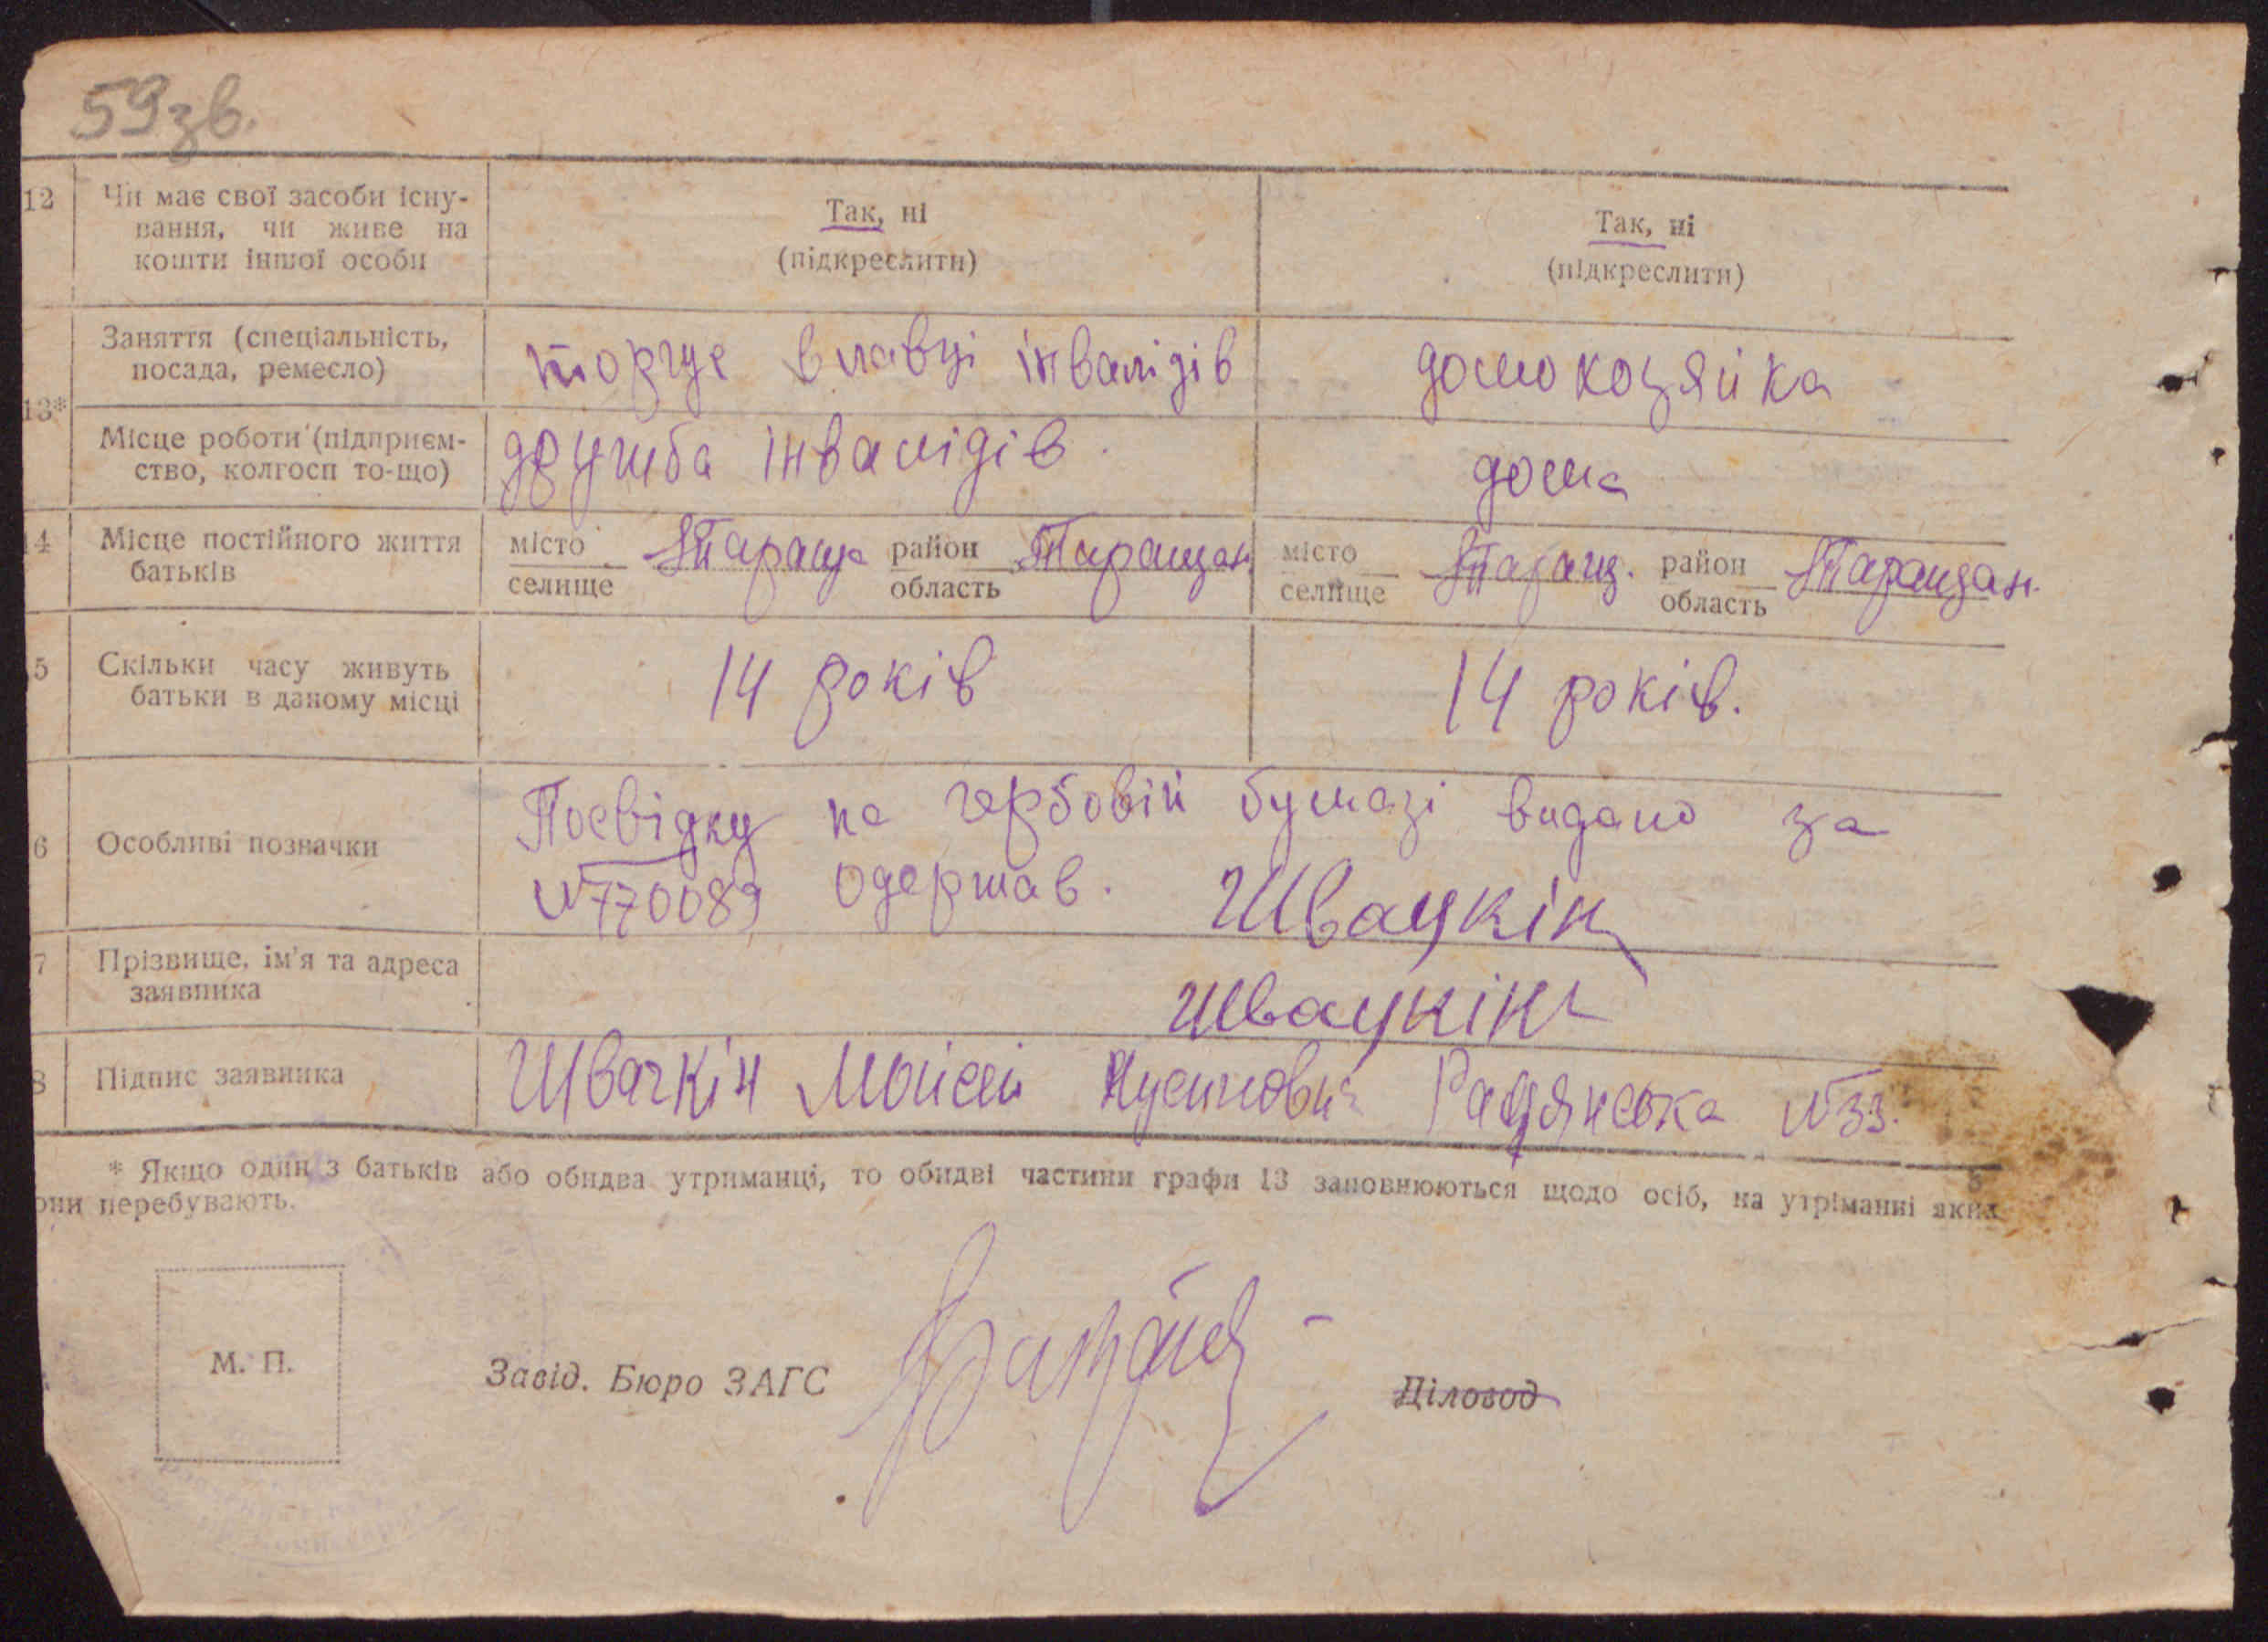 59зв.
12 Чи має свої засоби існу-
вання, чи живе на
кошти іншої особи
Так, ні
(підкреслити)
Так, ні
(підкреслити)
13*
Заняття (спеціальність,
посада, ремесло)
торгує в лавці інвалідів
домохозяйка
Місце роботи (підприєм-
ство, колгосп то-що)
дружба інвалідів.
дома
4 Місце постійного життя
батьків
місто
селище
Тараща
район
область
Таращан
місто
селище
Таращ.
район
область
Таращан.
5 Скільки часу живуть
батьки в даному місці
14 років
14 років.
6 Особливі позначки
Посвідку на гербовій бумазі видано за
№770089 одержав. Швачкін
7 Прізвище, ім'я та адреса
заявника
Швачкін
8 Підпис заявника
Швачкін Мойсей Радянська №33.
* Якщо один з батьків або обидва утриманці, то обидві частини графи 13 заповнюються щодо осіб, на утріманні яких
они перебувають.
М. П.
Завід. Бюро ЗАГС
Діловод